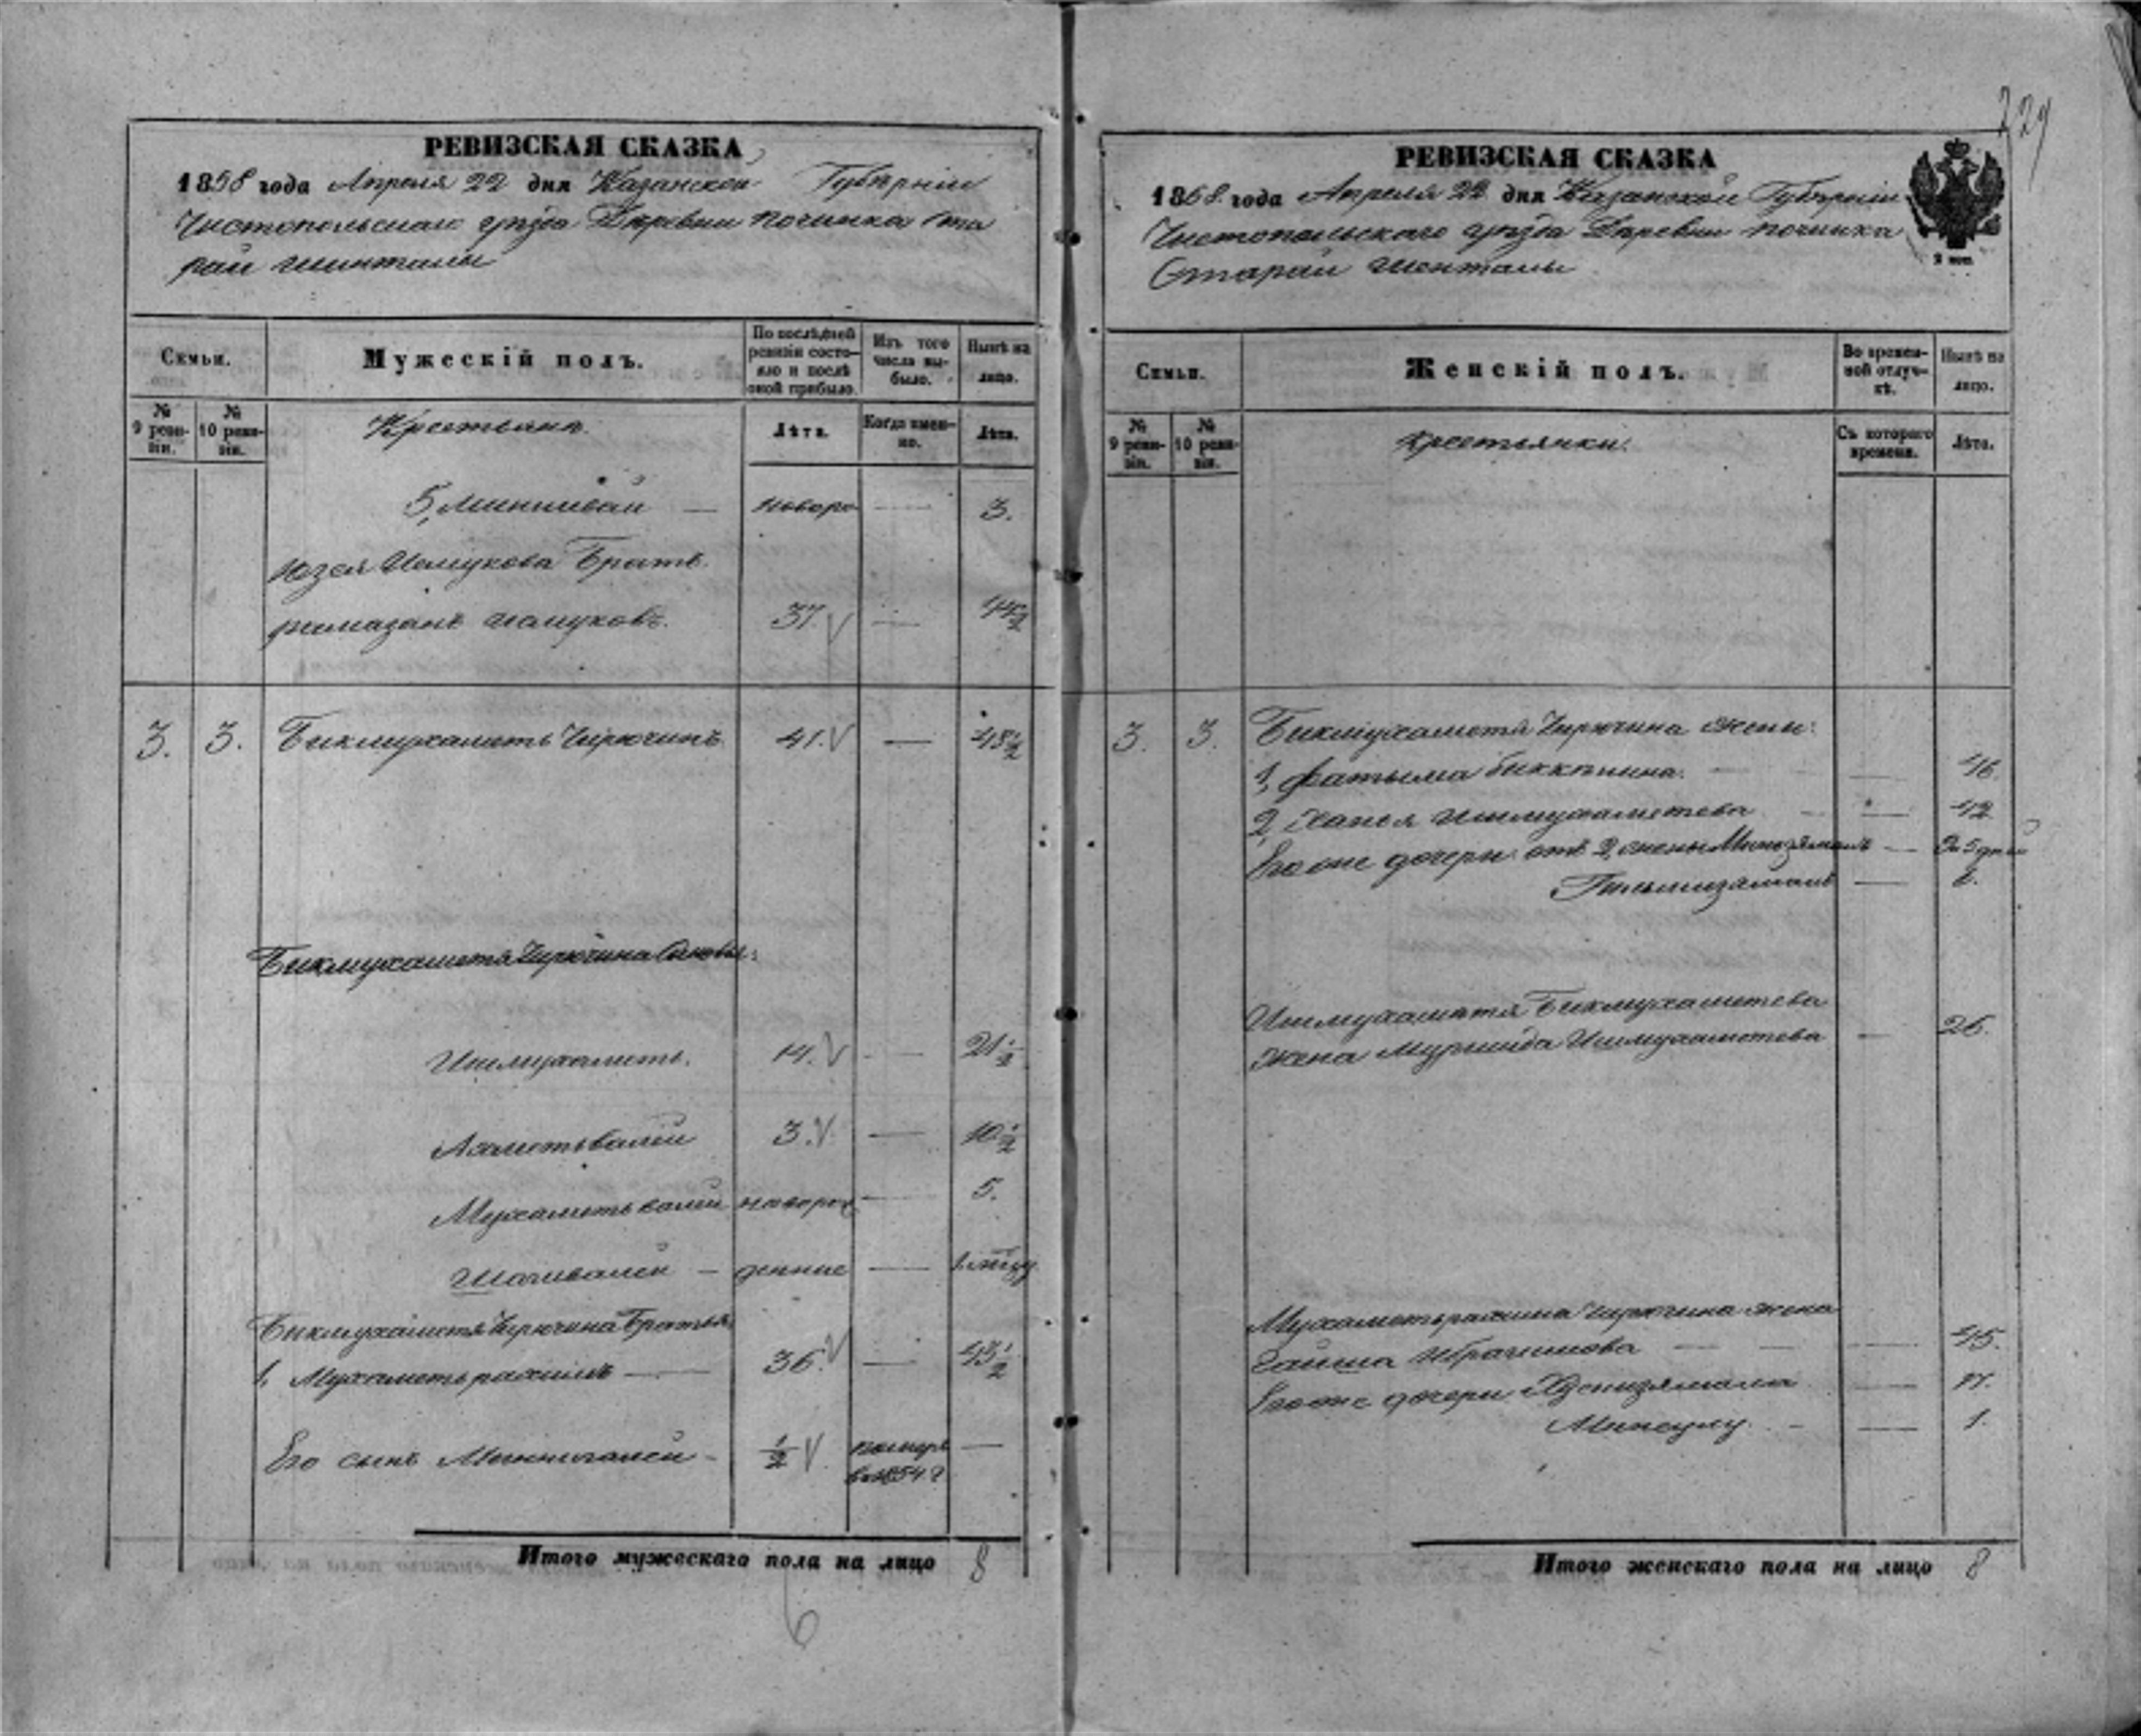 229
РЕВИЗСКАЯ СКАЗКА
1858 года Апреля 22 дня Казанской Губерніи
Чистопольскаго уезда Деревни починка Ста
рай Шинталы
Семьи.
Мужескій полъ.
По послѣдней ревизіи состояло и послѣ оной прибыло.
Изъ того числа выбыло.
Нынѣ на лицо.
№ 9 ревизіи.
№ 10 ревизіи.
Крестьяна.
Лѣта.
Когда именно.
Лѣта.
5, Минливай — новоро — 3.
Юзея Ишмукова Братъ.
рамазанъ Ишмуковъ. 37. V — 44½
3. 3. Бикмухаметь Чирючинъ. 41. V — 48½
Бикмухаметя Чирючина Сыновья:
Ишмухаметь. 14. V — 21½
Ахметьвалей 3. V — 10½
Мухаметьвалей новорож — 5.
Шагивалей — денные —
Бикмухаметя Чирючина Братья
1, Мухаметьрахимъ — 36. V — 43½
Его сынъ Миннигалей - ½ V. помире —
в 1854 г
Итого мужескаго пола на лицо 8
6
РЕВИЗСКАЯ СКАЗКА
1858 года Апреля 22 дня Казанской Губерніи
Чистопольскаго уезда Деревни починка
Старай Шенталы
2 коп.
Семьи.
Женскій полъ.
Во временной отлучкѣ.
Нынѣ на лицо.
№ 9 ревизіи.
№ 10 ревизіи.
Крестьянки.
Съ котораго времени.
Лѣта.
3. 3. Бикмухаметя Чирючина жены:
1, Фатыма Биккинина. — 46.
2, Ишмухаметева — 42
Его же дочери отъ 2, жены —
—
Ишмухаметя Бикмухаметева
жена Муршида Ишмухаметева — 26.
Мухаметьрахима Чирючина жена
Гайша Ибрагимова — 45.
Его же дочери —
Минсулу. — 1.
Итого женскаго пола на лицо 8